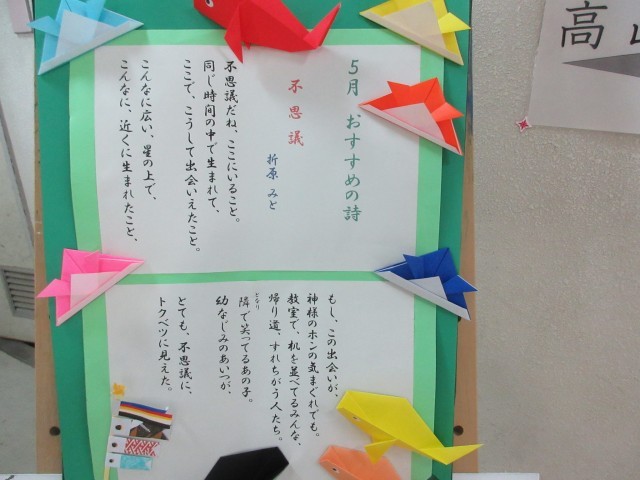 5月 おすすめの詩
不思議
折原 みと
不思議だね、ここにいること。
同じ時間の中で生まれて、
ここで、こうして出会いえたこと。
こんなに広い、星の上で、
こんなに、近くに生まれたこと、
もし、この出会いが、
神様のホンの気まぐれでも。
教室で、机を並べてるみんな、
帰り道、すれちがう人たち。
隣で笑ってるあの子。
となり
幼なじみのあいつが、
とても、不思議に、
トクベツに見えた。
高